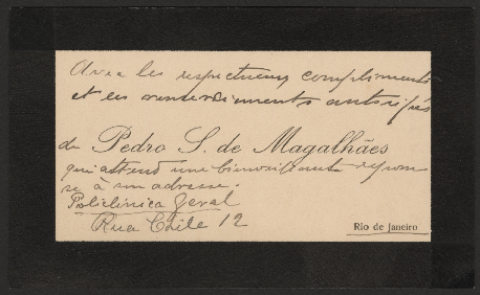 Avec les respectueux compliments
et ses remerciements anticipés
de Pedro S. de Magalhães
qui attend une bienveillante repon
se à son adresse.
Policlinica Geral
Rua Chile 12
Rio de Janeiro